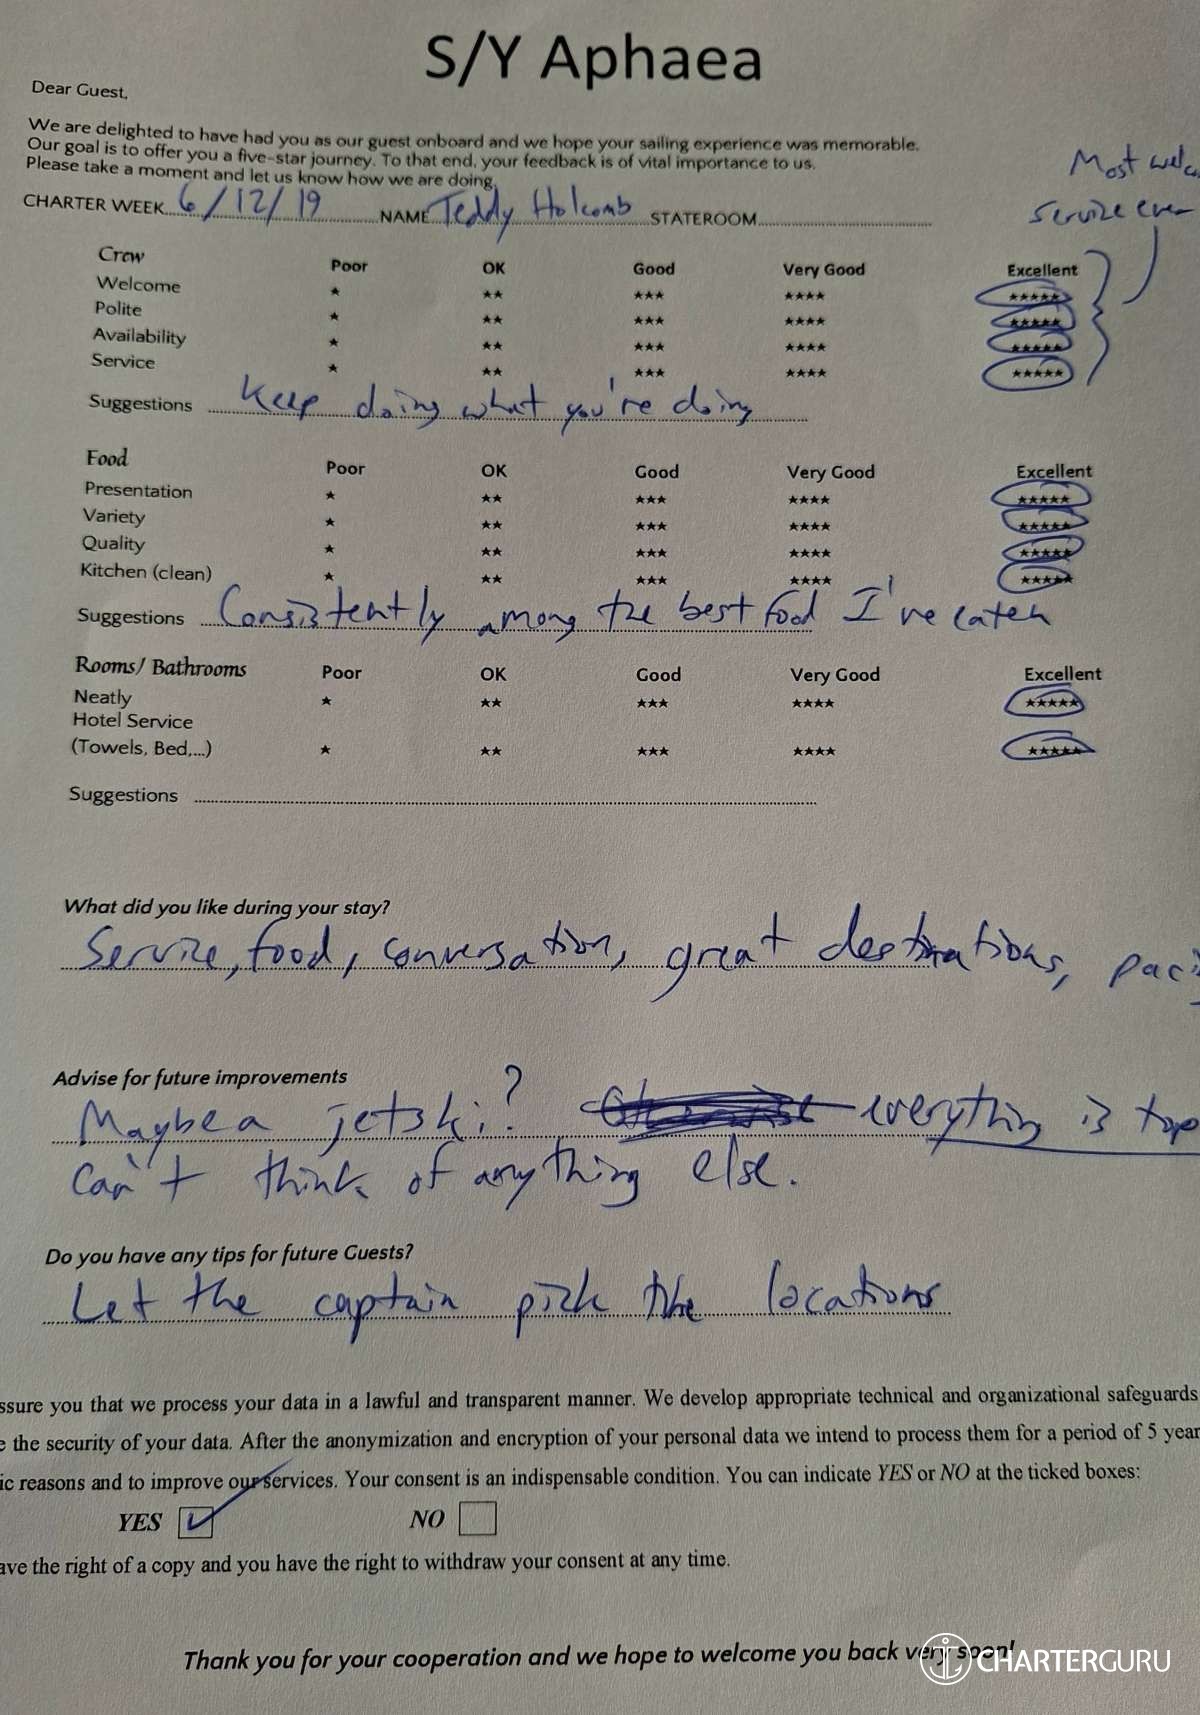 S/Y Aphaea
Dear Guest,
We are delighted to have had you as our guest onboard and we hope your sailing experience was memorable.
Our goal is to offer you a five-star journey. To that end, your feedback is of vital importance to us.
Please take a moment and let us know how we are doing.
Most welco
service ever
CHARTER WEEK 6/12/19 NAME Teddy Holcomb STATEROOM
Crew Poor OK Good Very Good Excellent
Welcome ★ ★★ ★★★ ★★★★ ★★★★★
Polite ★ ★★ ★★★ ★★★★ ★★★★★
Availability ★ ★★ ★★★ ★★★★ ★★★★★
Service ★ ★★ ★★★ ★★★★ ★★★★★
Suggestions Keep doing what you're doing
Food Poor OK Good Very Good Excellent
Presentation ★ ★★ ★★★ ★★★★ ★★★★★
Variety ★ ★★ ★★★ ★★★★ ★★★★★
Quality ★ ★★ ★★★ ★★★★ ★★★★★
Kitchen (clean) ★ ★★ ★★★ ★★★★ ★★★★★
Suggestions Consistently among the best food I've eaten
Rooms/ Bathrooms Poor OK Good Very Good Excellent
Neatly ★ ★★ ★★★ ★★★★ ★★★★★
Hotel Service
(Towels, Bed,...) ★ ★★ ★★★ ★★★★ ★★★★★
Suggestions
What did you like during your stay?
Service, food, conversation, great destinations,
Advise for future improvements
Maybe a jetski? everything is top
can't think of anything else.
Do you have any tips for future Guests?
Let the captain pick the locations
ssure you that we process your data in a lawful and transparent manner. We develop appropriate technical and organizational safeguards
e the security of your data. After the anonymization and encryption of your personal data we intend to process them for a period of 5 year
ic reasons and to improve our services. Your consent is an indispensable condition. You can indicate YES or NO at the ticked boxes:
YES NO
ave the right of a copy and you have the right to withdraw your consent at any time.
Thank you for your cooperation and we hope to welcome you back very soon!
CHARTERGURU